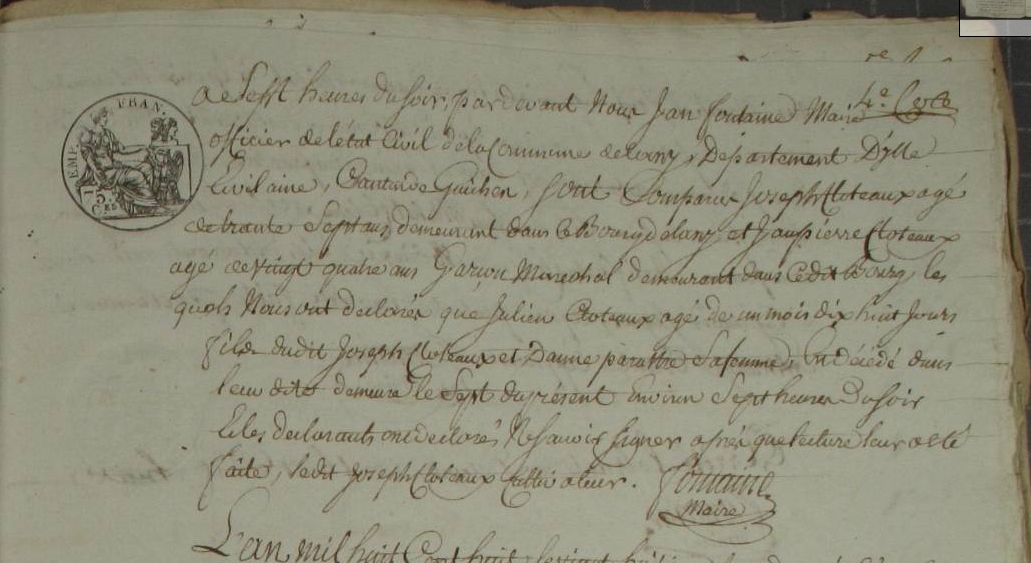 EMP. FRAN.
5.
Ces
re 1
4e.
a Sept heures du Soir, par devant Nous Jean fontaine Maire
officier de l'état Civil de la Commune de Lany, Département D'ylle
Evilaine, Canton de Guichen, sont Comparus Joseph Cloteaux agé
de trante Sept ans, demeurant dans le Bourg de lany, et Jean pierre Cloteaux
agé de vingt quatre ans Garçon Marechal demeurant dans le dit Bourg, les
quels Nous ont declarés que Julien Cloteaux agé de un mois dix huit Jours
fils dudit Joseph Cloteaux et D'anne parattre Safemme, Est décédé dans
leur dite demeure le Sept du présent Environ Sept heures Du Soir
Et les declarants ont declarés Ne Savoir Signer après que lecture leur a eté
faite, ledit Joseph Cloteaux
fontaine
Maire
L'an mil huit Cent huit le vingt